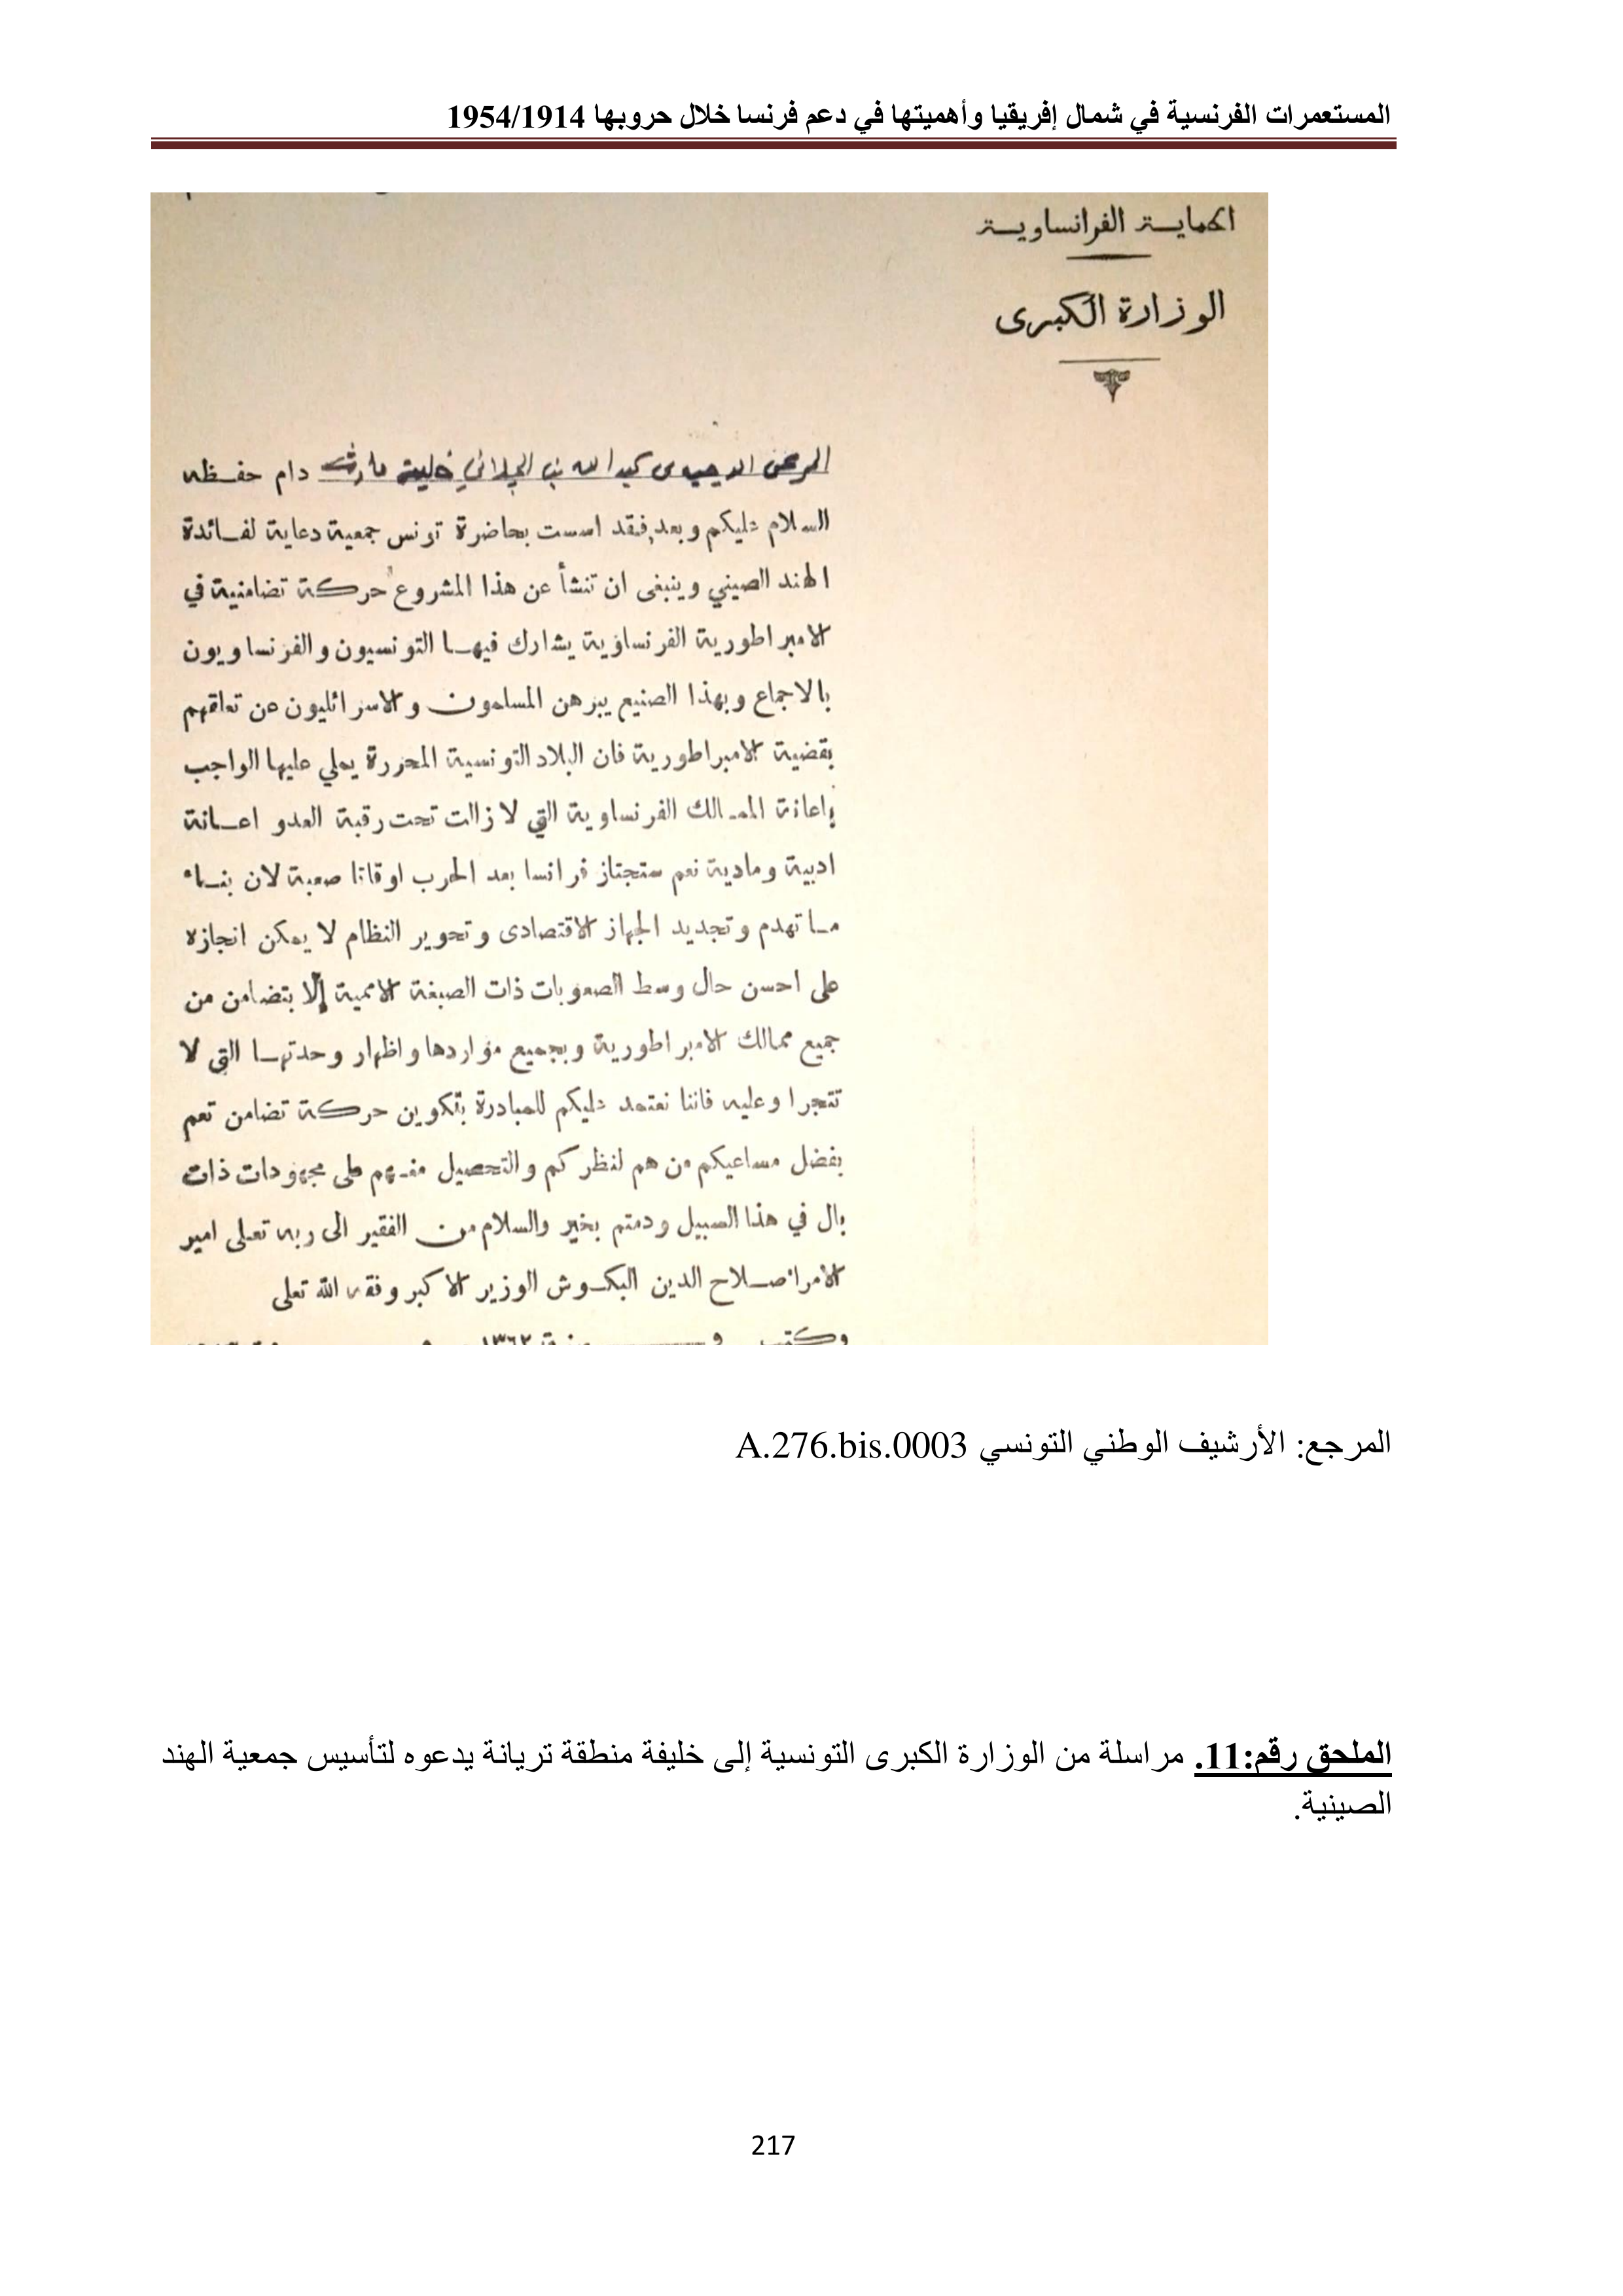 المستعمرات الفرنسية في شمال إفريقيا وأهميتها في دعم فرنسا خلال حروبها 1954/1914
الحماية الفرانساوية
الوزارة الكبرى
عبد الله بن الجيلاني خليفة دام حفظه
السلام عليكم وبعد فقد اسست بحاضرة تونس جمعية دعاية لفائدة
الهند الصيني وينبغى ان تنشأ عن هذا المشروع حركة تضامنية في
الامبراطورية الفرنساوية يشارك فيها التونسيون والفرنساويون
بالاجماع وبهذا الصنيع يبرهن المسلمون والاسرائليون عن تعلقهم
بقضية الامبراطورية فان البلاد التونسية المحررة يملي عليها الواجب
إعانة الممالك الفرنساوية التي لا زالت تحت رقبة العدو اعانة
ادبية ومادية نعم ستجتاز فرانسا بعد الحرب اوقاتا صعبة لان بناء
ما تهدم وتجديد الجهاز الاقتصادى وتحوير النظام لا يمكن انجازه
على احسن حال وسط الصعوبات ذات الصبغة الاممية إلا بتضامن من
جميع ممالك الامبراطورية وبجميع مواردها واظهار وحدتها التي لا
تتجرا وعليه فاننا نعتمد عليكم للمبادرة بتكوين حركة تضامن تعم
بفضل مساعيكم من هم لنظركم والتحصيل منهم على مجهودات ذات
بال في هذا السبيل ودمتم بخير والسلام من الفقير الى ربه تعلى امير
الامرا صلاح الدين البكوش الوزير الاكبر وفقه الله تعلى
وكتب في سنة ١٣٦٢
المرجع: الأرشيف الوطني التونسي A.276.bis.0003
الملحق رقم:11. مراسلة من الوزارة الكبرى التونسية إلى خليفة منطقة تريانة يدعوه لتأسيس جمعية الهند
الصينية.
217